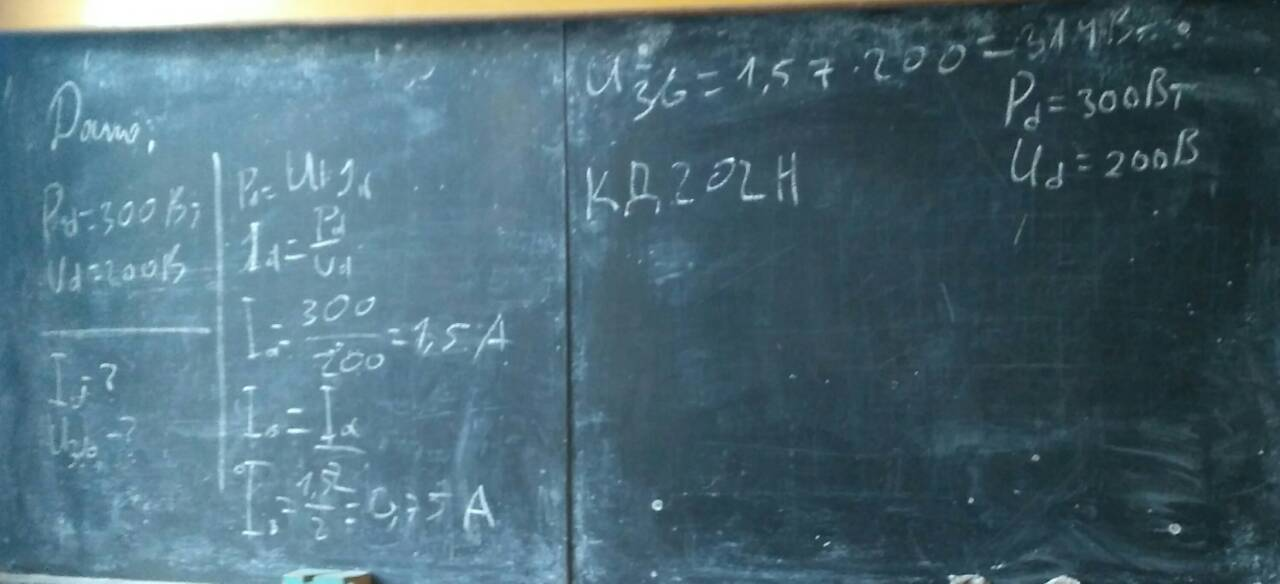 Дано:
Pd=300Вт
Ud=200В
Iд-?
Uзб-?
Pd=Ud·Id
Id=Pd/Ud
Id=300/200=1,5 А
Iд=Id/2
Iд=1,5/2=0,75 А
Uзб=1,57·200=314Вт
КД202Н
Pd=300Вт
Ud=200В